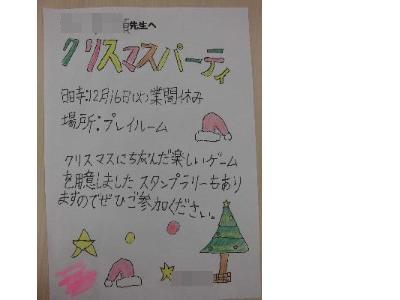 先生へ
クリスマスパーティ
日時:12月16日(火)業間休み
場所:プレイルーム
クリスマスにちなんだ楽しいゲーム
を用意しました スタンプラリーもあり
ますのでぜひご参加ください。